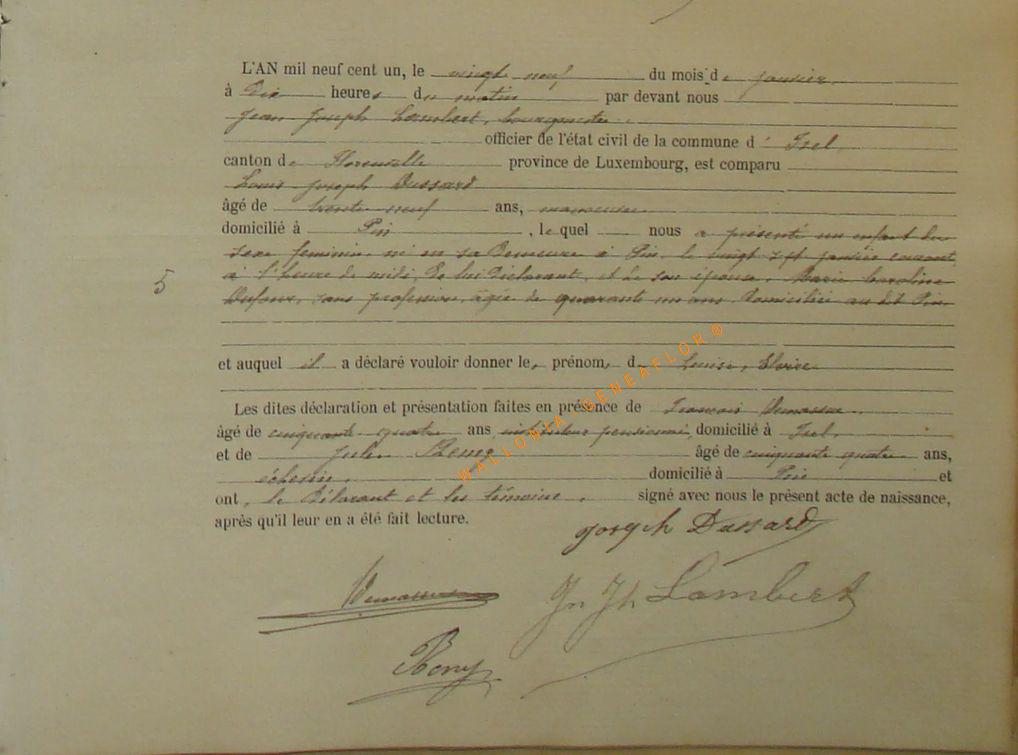 L'AN mil neuf cent un, le vingt neuf du mois de janvier
à Dix heures du matin par devant nous
Jean Joseph Lambert, bourgmestre
officier de l'état civil de la commune d' Izel,
canton de Florenville province de Luxembourg, est comparu
Louis Joseph Dussard
âgé de trente neuf ans, manoeuvre
domicilié à Pin, le quel nous a présenté un enfant du
sexe féminin, né en sa Demeure à Pin, le vingt sept janvier courant
5 à l'heure de midi De lui Déclarant, et de son épouse, Marie Caroline
Dufour, sans profession, âgée de quarante un ans Domiciliée au dit Pin
et auquel il a déclaré vouloir donner les prénoms de Louise,
Les dites déclaration et présentation faites en présence de François
âgé de cinquante quatre ans, instituteur pensionné, domicilié à Izel,
et de Jules âgé de cinquante quatre ans,
échevin, domicilié à Pin et
ont, le Déclarant et les témoins, signé avec nous le présent acte de naissance,
après qu'il leur en a été fait lecture.
Joseph Dussard
Jn Jh Lambert
WALLONIA-GENEAFLOR®